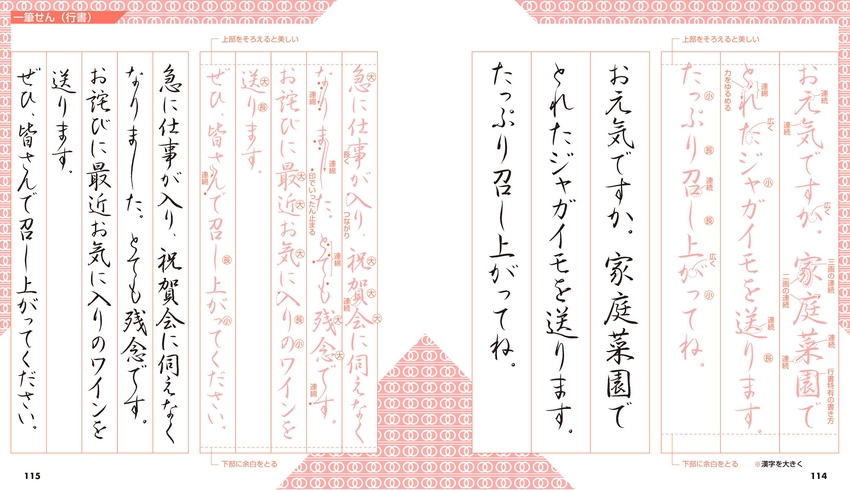 一筆せん（行書）
上部をそろえると美しい
お元気ですか。家庭菜園で
とれたジャガイモを送ります。
たっぷり召し上がってね。
連続
連続
広く
三画の連続
二画の連続
連続
連続
行書特有の書き方
連綿
力をゆるめる
広く
小
連続
長
小
長
連続
長
広く
小
下部に余白をとる
※漢字を大きく
お元気ですか。家庭菜園で
とれたジャガイモを送ります。
たっぷり召し上がってね。
114
上部をそろえると美しい
急に仕事が入り、祝賀会に伺えなく
なりました。とても残念です。
お詫びに最近お気に入りのワインを
送ります。
ぜひ、皆さんで召し上がってください。
大
長く
つながり
大
大
大
連綿
連綿
連綿
連続
大
連綿
大
•印でいったん止まる
大
大
長
小
大
長
連綿
長
小
下部に余白をとる
急に仕事が入り、祝賀会に伺えなく
なりました。とても残念です。
お詫びに最近お気に入りのワインを
送ります。
ぜひ、皆さんで召し上がってください。
115